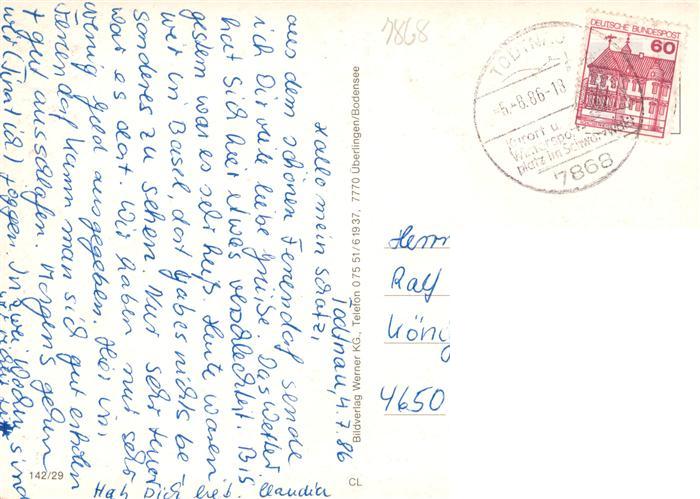 Todtnau, 4.7.86
Hallo mein Schatz,
aus dem schönen Feriendorf sende
ich Dir viele liebe Grüße. Das Wetter
hat sich hier etwas verschlechtert. Bis
gestern war es sehr heiß. Heute waren
wir in Basel, dort gabes nichts be
sonderes zu sehen. Nur sehr teuer
war es dort. Wir haben nur sehr
wenig Geld ausgegeben. Hier im
Feriendorf kann man sich gut erholen
+ gut ausschlafen. Morgens gehen
wir joggen. In zwei Wochen sind
wir
Hab Dich lieb. Claudia
142/29
CL
Bildverlag Werner KG., Telefon 0 75 51/6 19 37, 7770 Überlingen/Bodensee
7868
TODTNAU
-5.-8.86-18
Kurort u.
Wintersport-
platz im Schwarzwald
7868
DEUTSCHE BUNDESPOST
60
Herrn
Ralf
König
4650